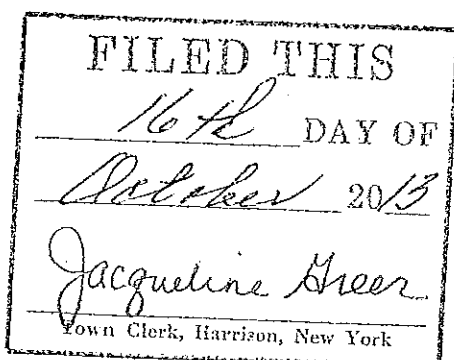 FILED THIS
16th DAY OF
October 2013
Jacqueline Greer
Town Clerk, Harrison, New York